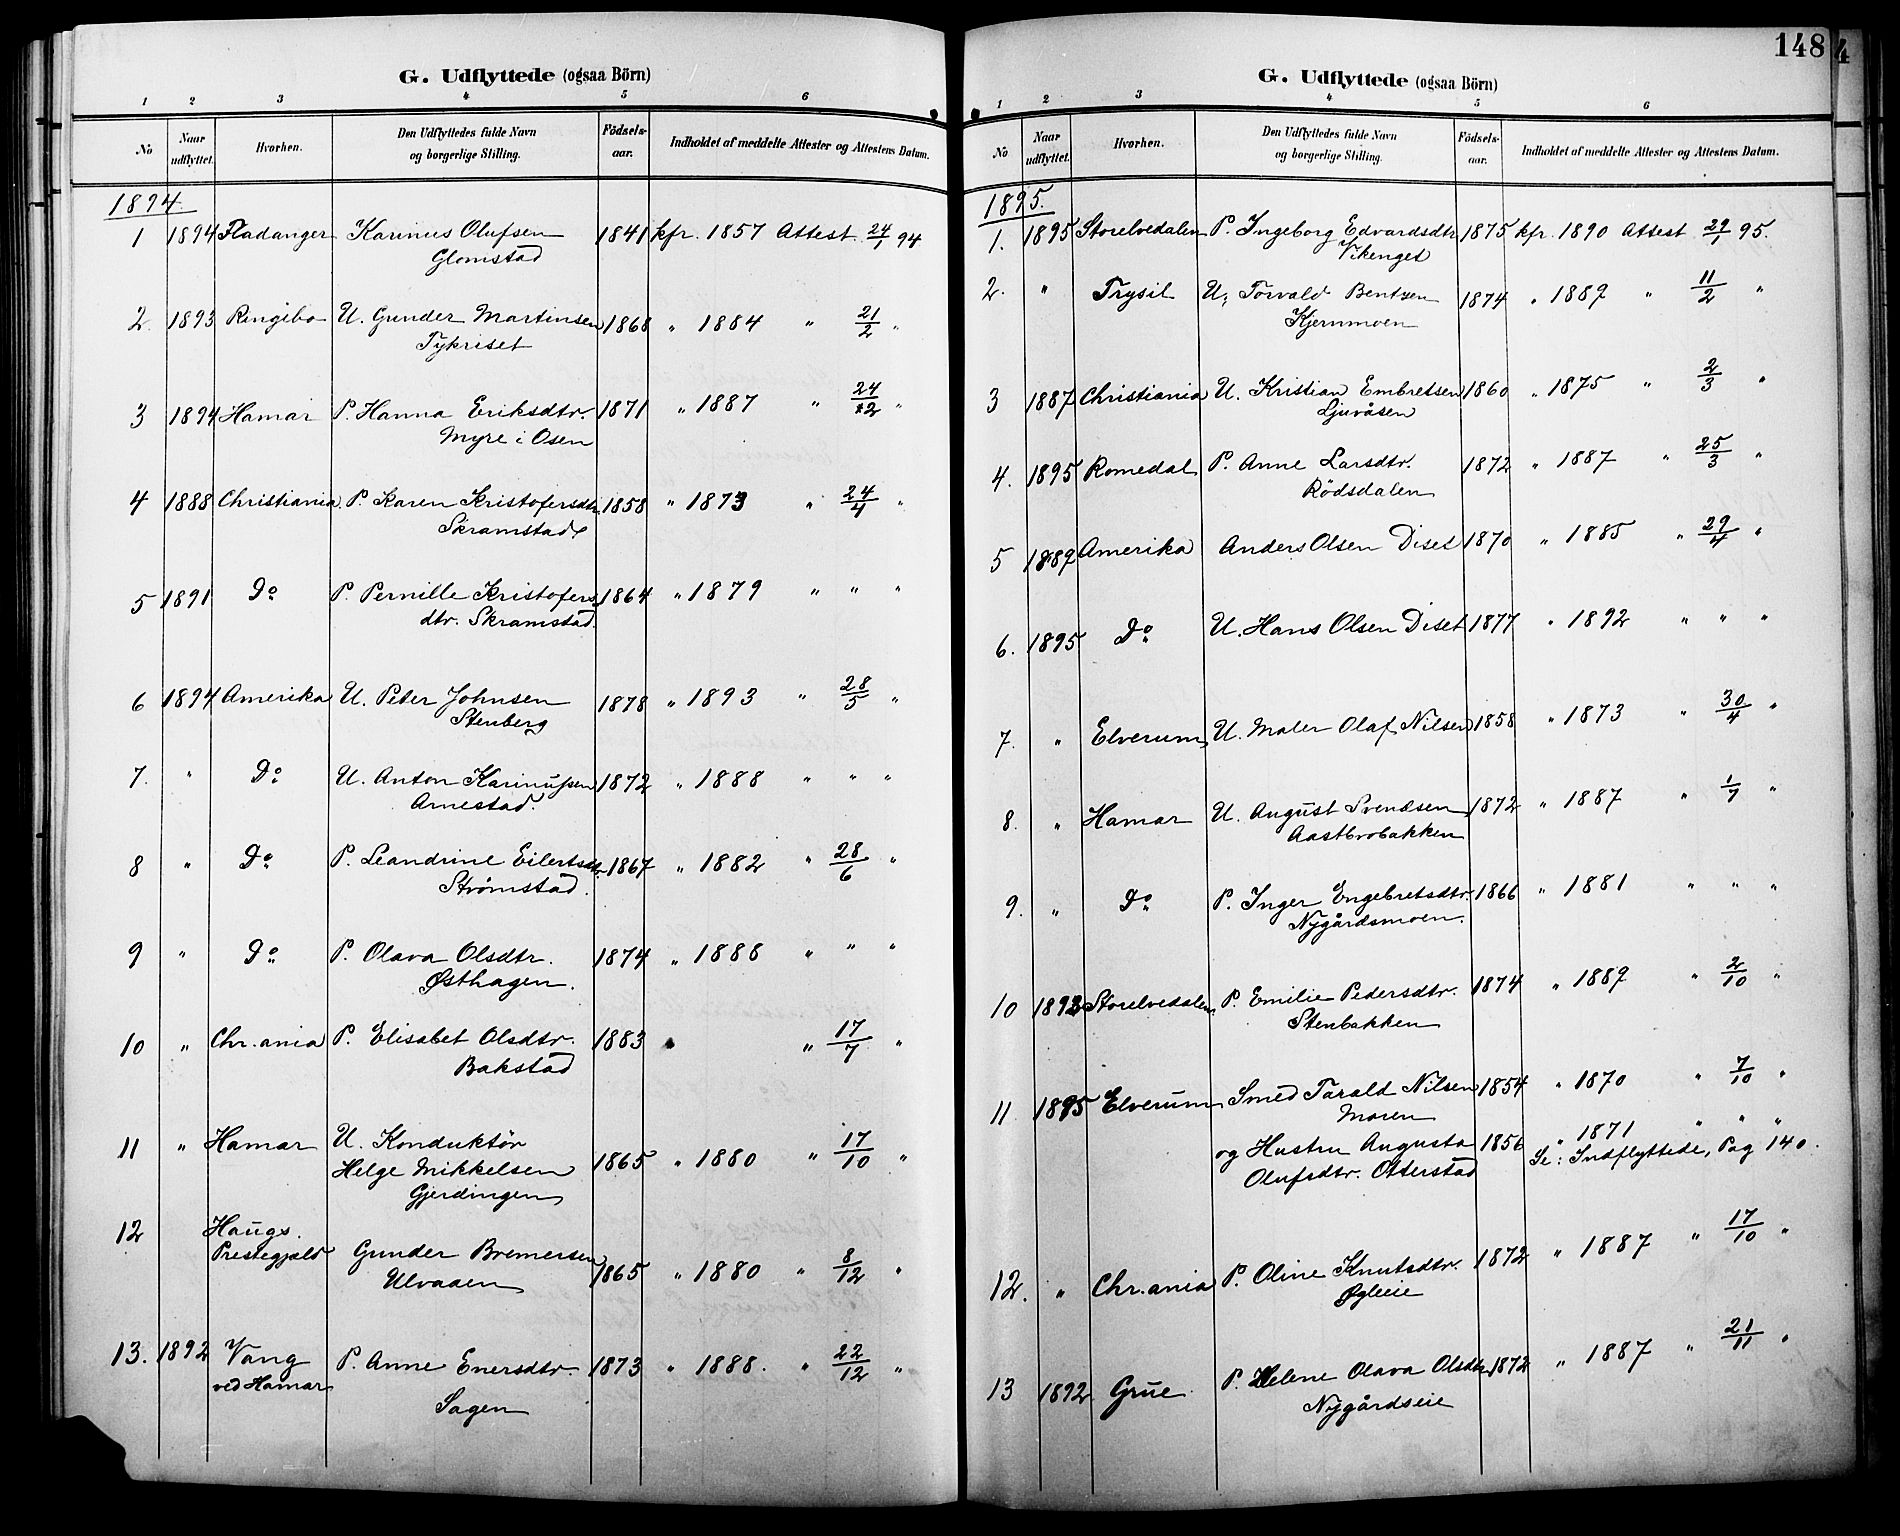 G. Udflyttede (ogsaa Börn)
1 2 3 4 5 6
No Naar udflyttet. Hvorhen. Den Udflyttedes fulde Navn og borgerlige Stilling. Födsels-aar. Indholdet af meddelte Attester og Attestens Datum.
1894.
1 1894 Fladanger Karinus Olufsen 1841 kfr. 1857 Attest 24/1 94
Glomstad
2. 1893 Ringibo U. Gunder Martinsen 1868 " 1884 " 21/2 "
Tykriset
3 1894 Hamar P. Hanna Eriksdtr. 1871 " 1887 " 24/2 "
Myre i Osen
4 1888 Christiania P. Karen Kristofersdtr. 1858 " 1873 " 24/4 "
Skramstad
5 1891 Do P. Pernille Kristofers 1864 " 1879 " " "
dtr. Skramstad.
6 1894 Amerika U. Peter Johnsen 1878 " 1893 " 28/5 "
Stenberg
7. " Do U. Anton Karinussen 1872 " 1888 " " "
Arnestad.
8 " Do P. Leandrine Eilertsdtr. 1867 " 1882 " 28/6 "
Strømstad.
9 " Do P. Olava Olsdtr. 1874 " 1888 " " "
Østhagen.
10 " Chr.ania P. Elisabet Olsdtr. 1883 " " 17/7 "
Bakstad
11 " Hamar U. Konduktör
Helge Mikkelsen 1865 " 1880 " 17/10 "
Gjerdingen
12 Haugs.
Prestegjæld Gunder Bremersen 1865 " 1880 " 8/12 "
Ulvaaen
13. 1892 Vang P. Anne Enersdtr. 1873 " 1888. " 22/12 "
ved Hamar
Sagen
148
4
G. Udflyttede (ogsaa Börn)
1 2 3 4 5 6
No Naar udflyttet. Hvorhen. Den Udflyttedes fulde Navn og borgerlige Stilling. Födsels-aar. Indholdet af meddelte Attester og Attestens Datum.
1895.
1. 1895 Storelvedalen P. Ingeborg Edvardsdtr 1875 kfr. 1890 Attest 29/1 95.
Vikenget
2. " Trysil U. Torvald Bentsen 1874 " 1889 " 11/2 "
Kjernmoen
3 1887 Christiania U. Kristian Embretsen 1860 " 1875 " 2/3 "
Ljuvåsen
4. 1895 Romedal P. Anne Larsdtr. 1872 " 1887 " 25/3 "
Rödsdalen
5 1889 Amerika Anders Olsen Diset 1870 " 1885 " 29/4 "
6. 1895 Do U. Hans Olsen Diset 1877 " 1892 " " "
7. " Elverum U. Maler Olaf Nilsen 1858 " 1873 " 30/4 "
8. " Hamar U. August Svendsen 1872 " 1887 " 1/7 "
Aastbrobakken
9. " Do P. Inger Engebretsdtr. 1866 " 1881 " " "
Nygårdsmoen.
10 1893 Storelvedalen P. Emilie Pedersdtr. 1874 " 1889 " 2/10 "
Stenbakken
11 1895 Elverum Smed Tarald Nilsen 1854 " 1870 " 7/10 "
Moren
og Hustru Augusta 1856 " 1871 " " "
Olufsdtr. Otterstad Se: Indflyttede, Pag 140.
12. " Chr.ania P. Oline Knutsdtr. 1872 " 1887 " 17/10 "
Ygleie
13 1892 Grue P. Helene Olava Olsdtr 1872 " 1887 " 21/11 "
Nygårdseie